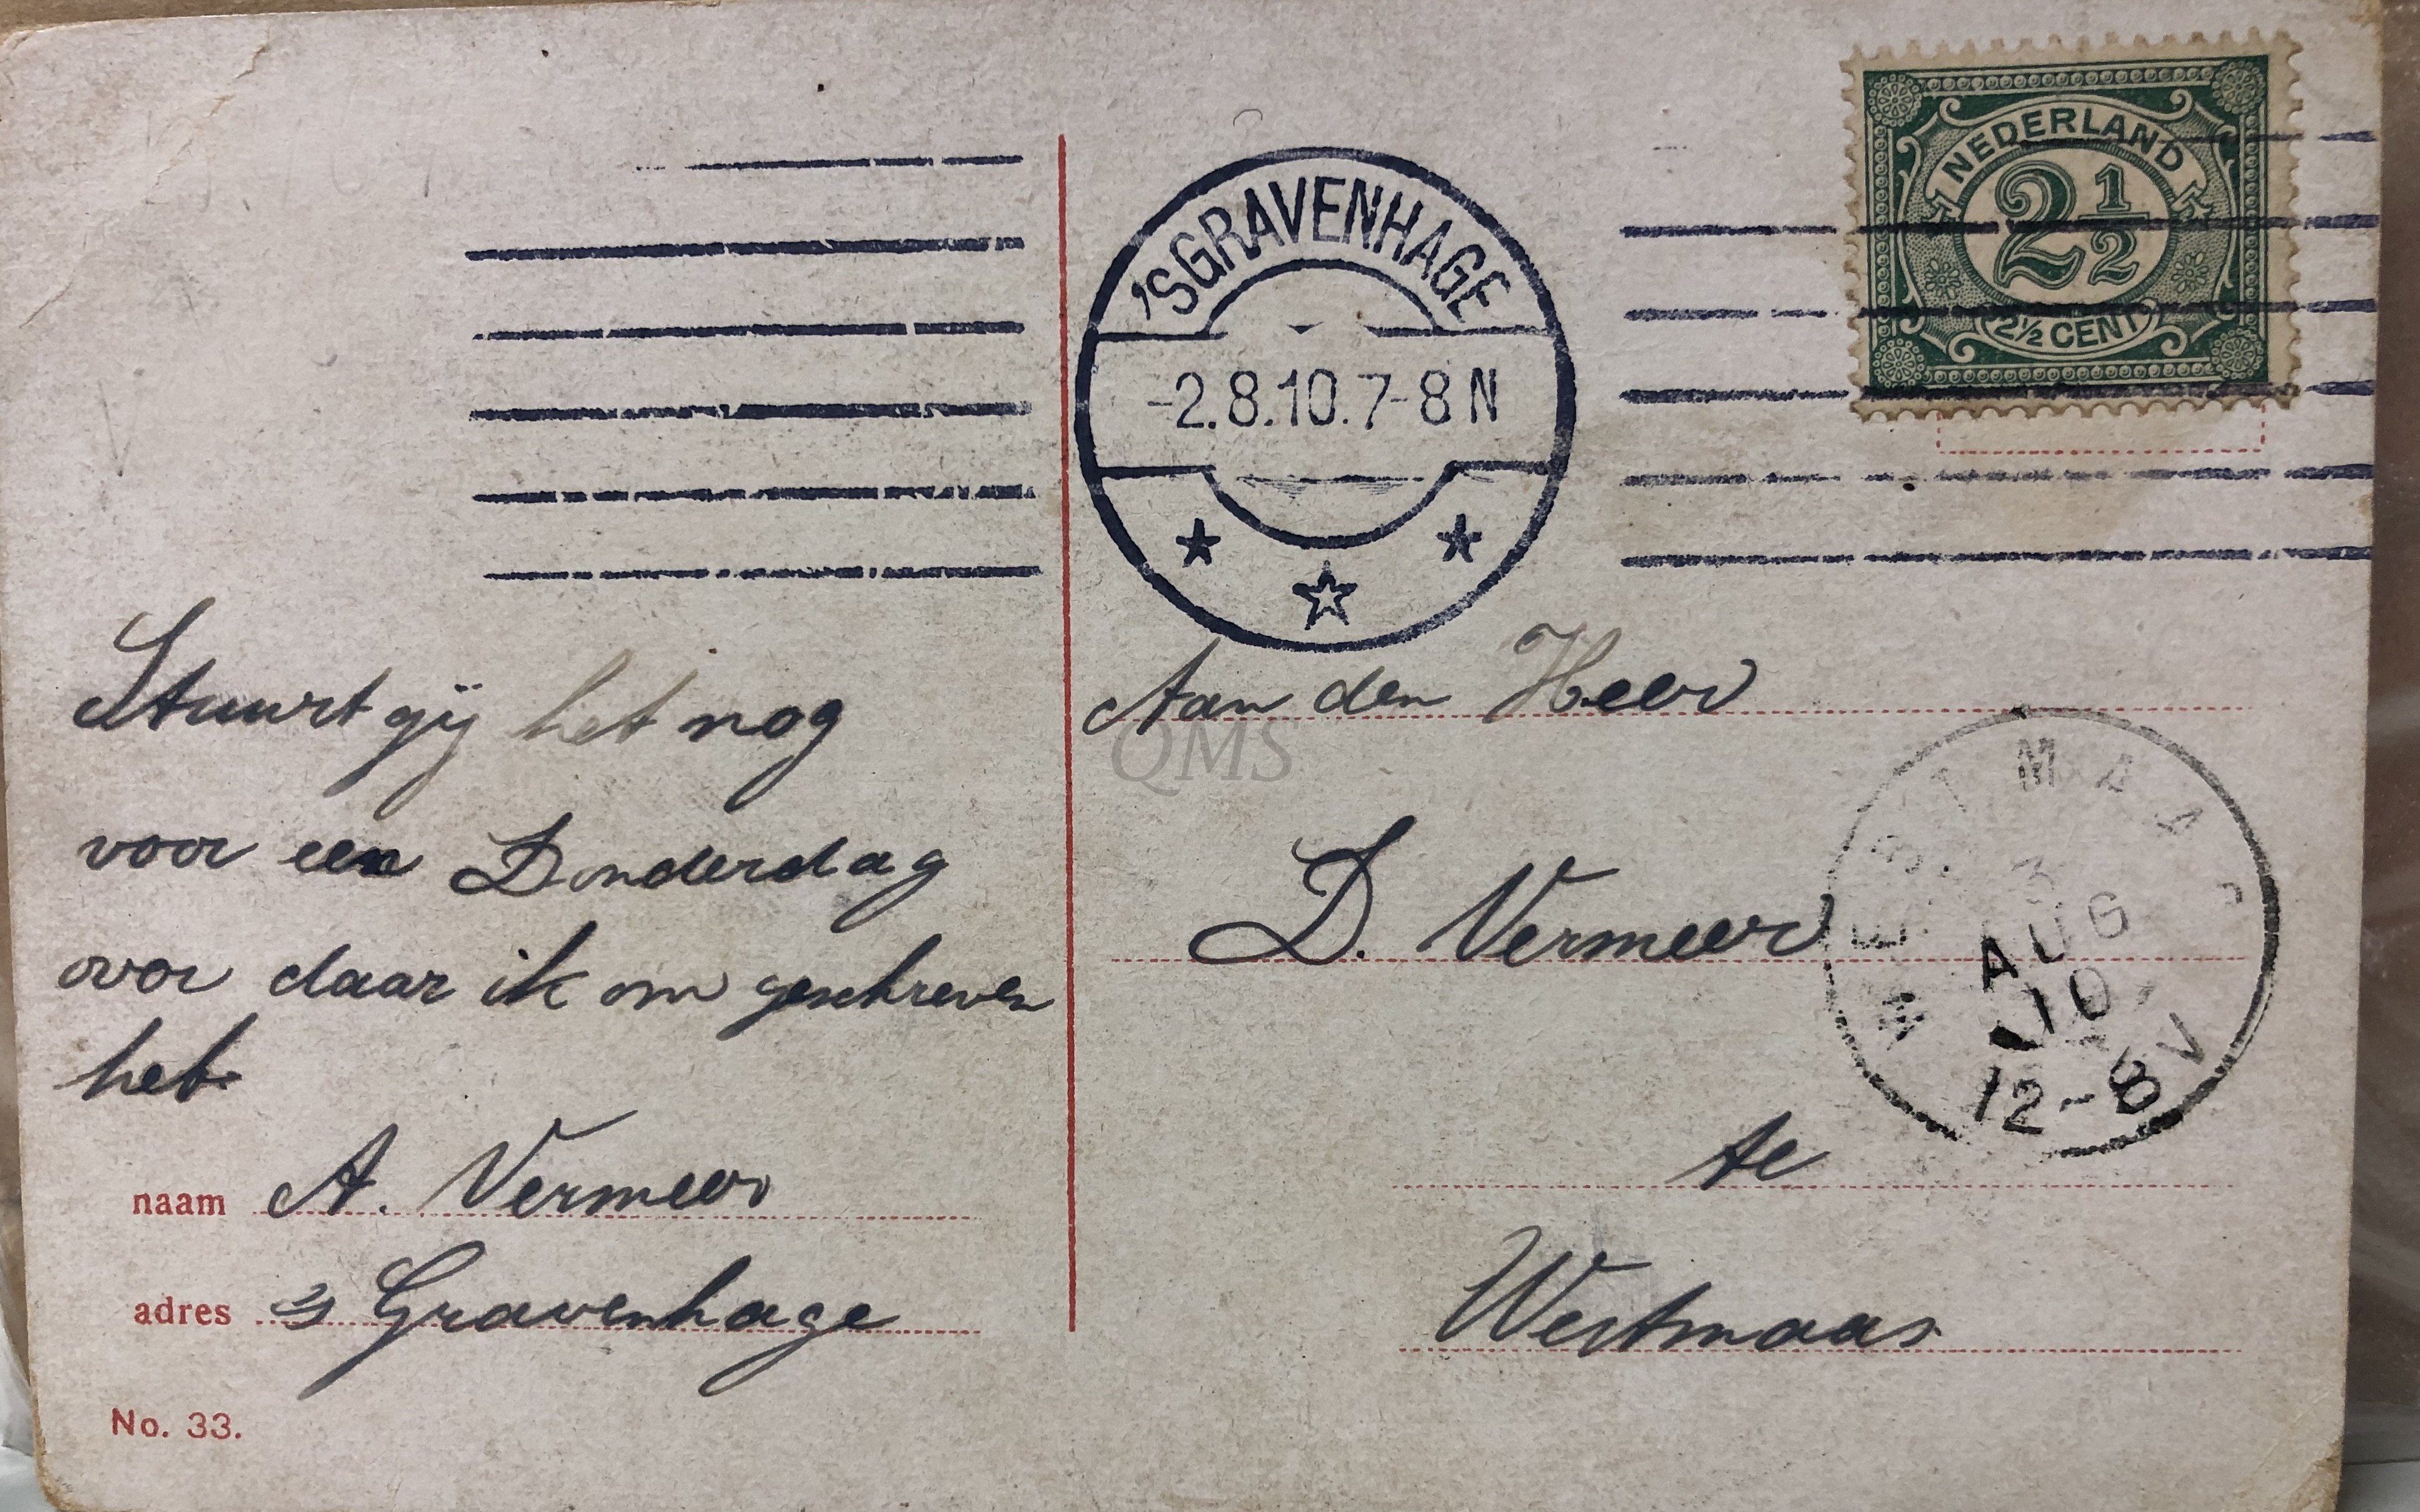 'SGRAVENHAGE
-2.8.10.7-8N
NEDERLAND
2 1/2
2½ CENT
Stuurt gij het nog
voor een Donderdag
over daar ik om geschreven
heb.
naam A. Vermeer
adres 's Gravenhage
No. 33.
Aan den Heer
QMS
D. Vermeer
te
Westmaas
WESTMAAS
3
AUG
10
12-8V